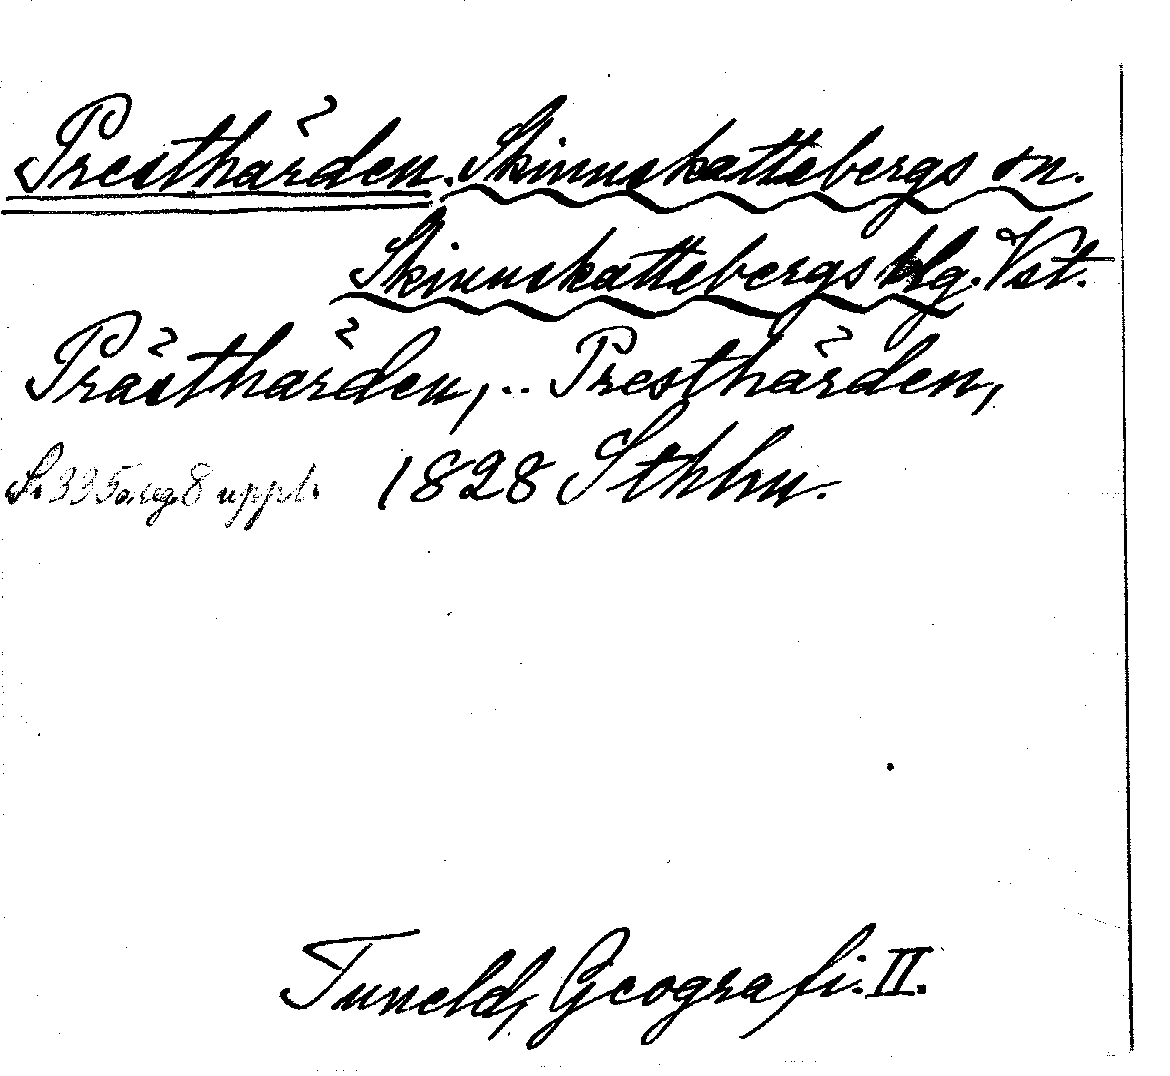 Presthärden. Skinnskattebergs sn.
Skinnskattebergs blg. Vst.
Prästhärden, .. Presthärden,
S. 335 o. reg. 8 uppl. 1828 Sthlm.
Tuneld, Geografi. II.